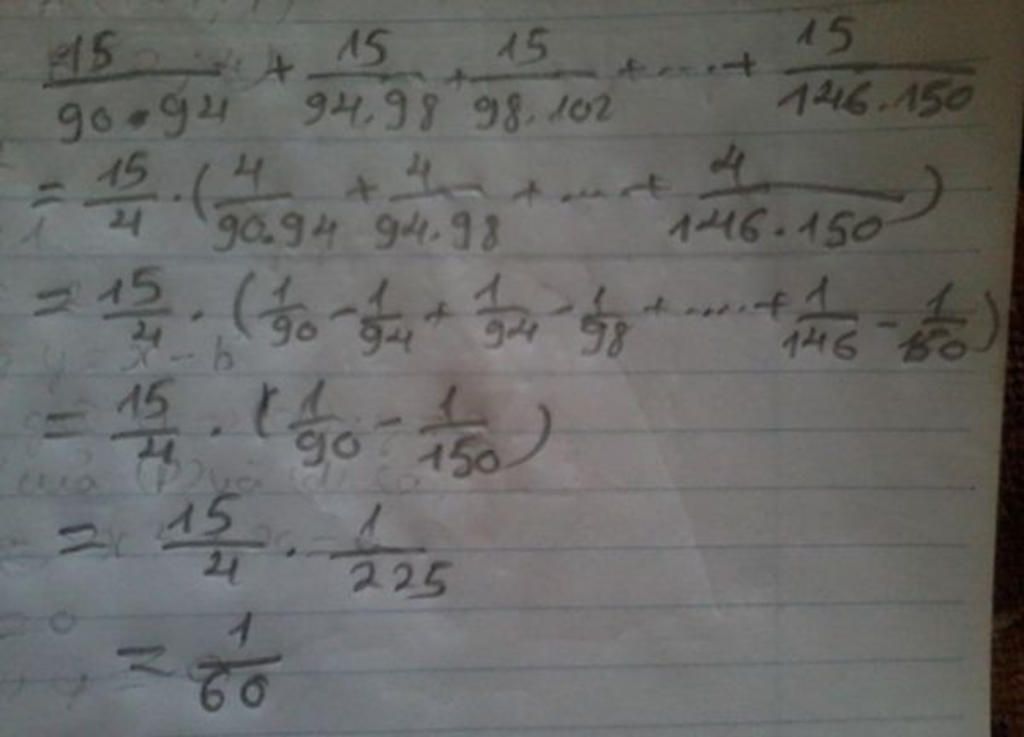 15/90.94 + 15/94.98 + 15/98.102 + ... + 15/146.150
= 15/4 . (4/90.94 + 4/94.98 + ... + 4/146.150)
= 15/4 . (1/90 - 1/94 + 1/94 - 1/98 + .... + 1/146 - 1/150)
= 15/4 . (1/90 - 1/150)
= 15/4 . 1/225
= 1/60